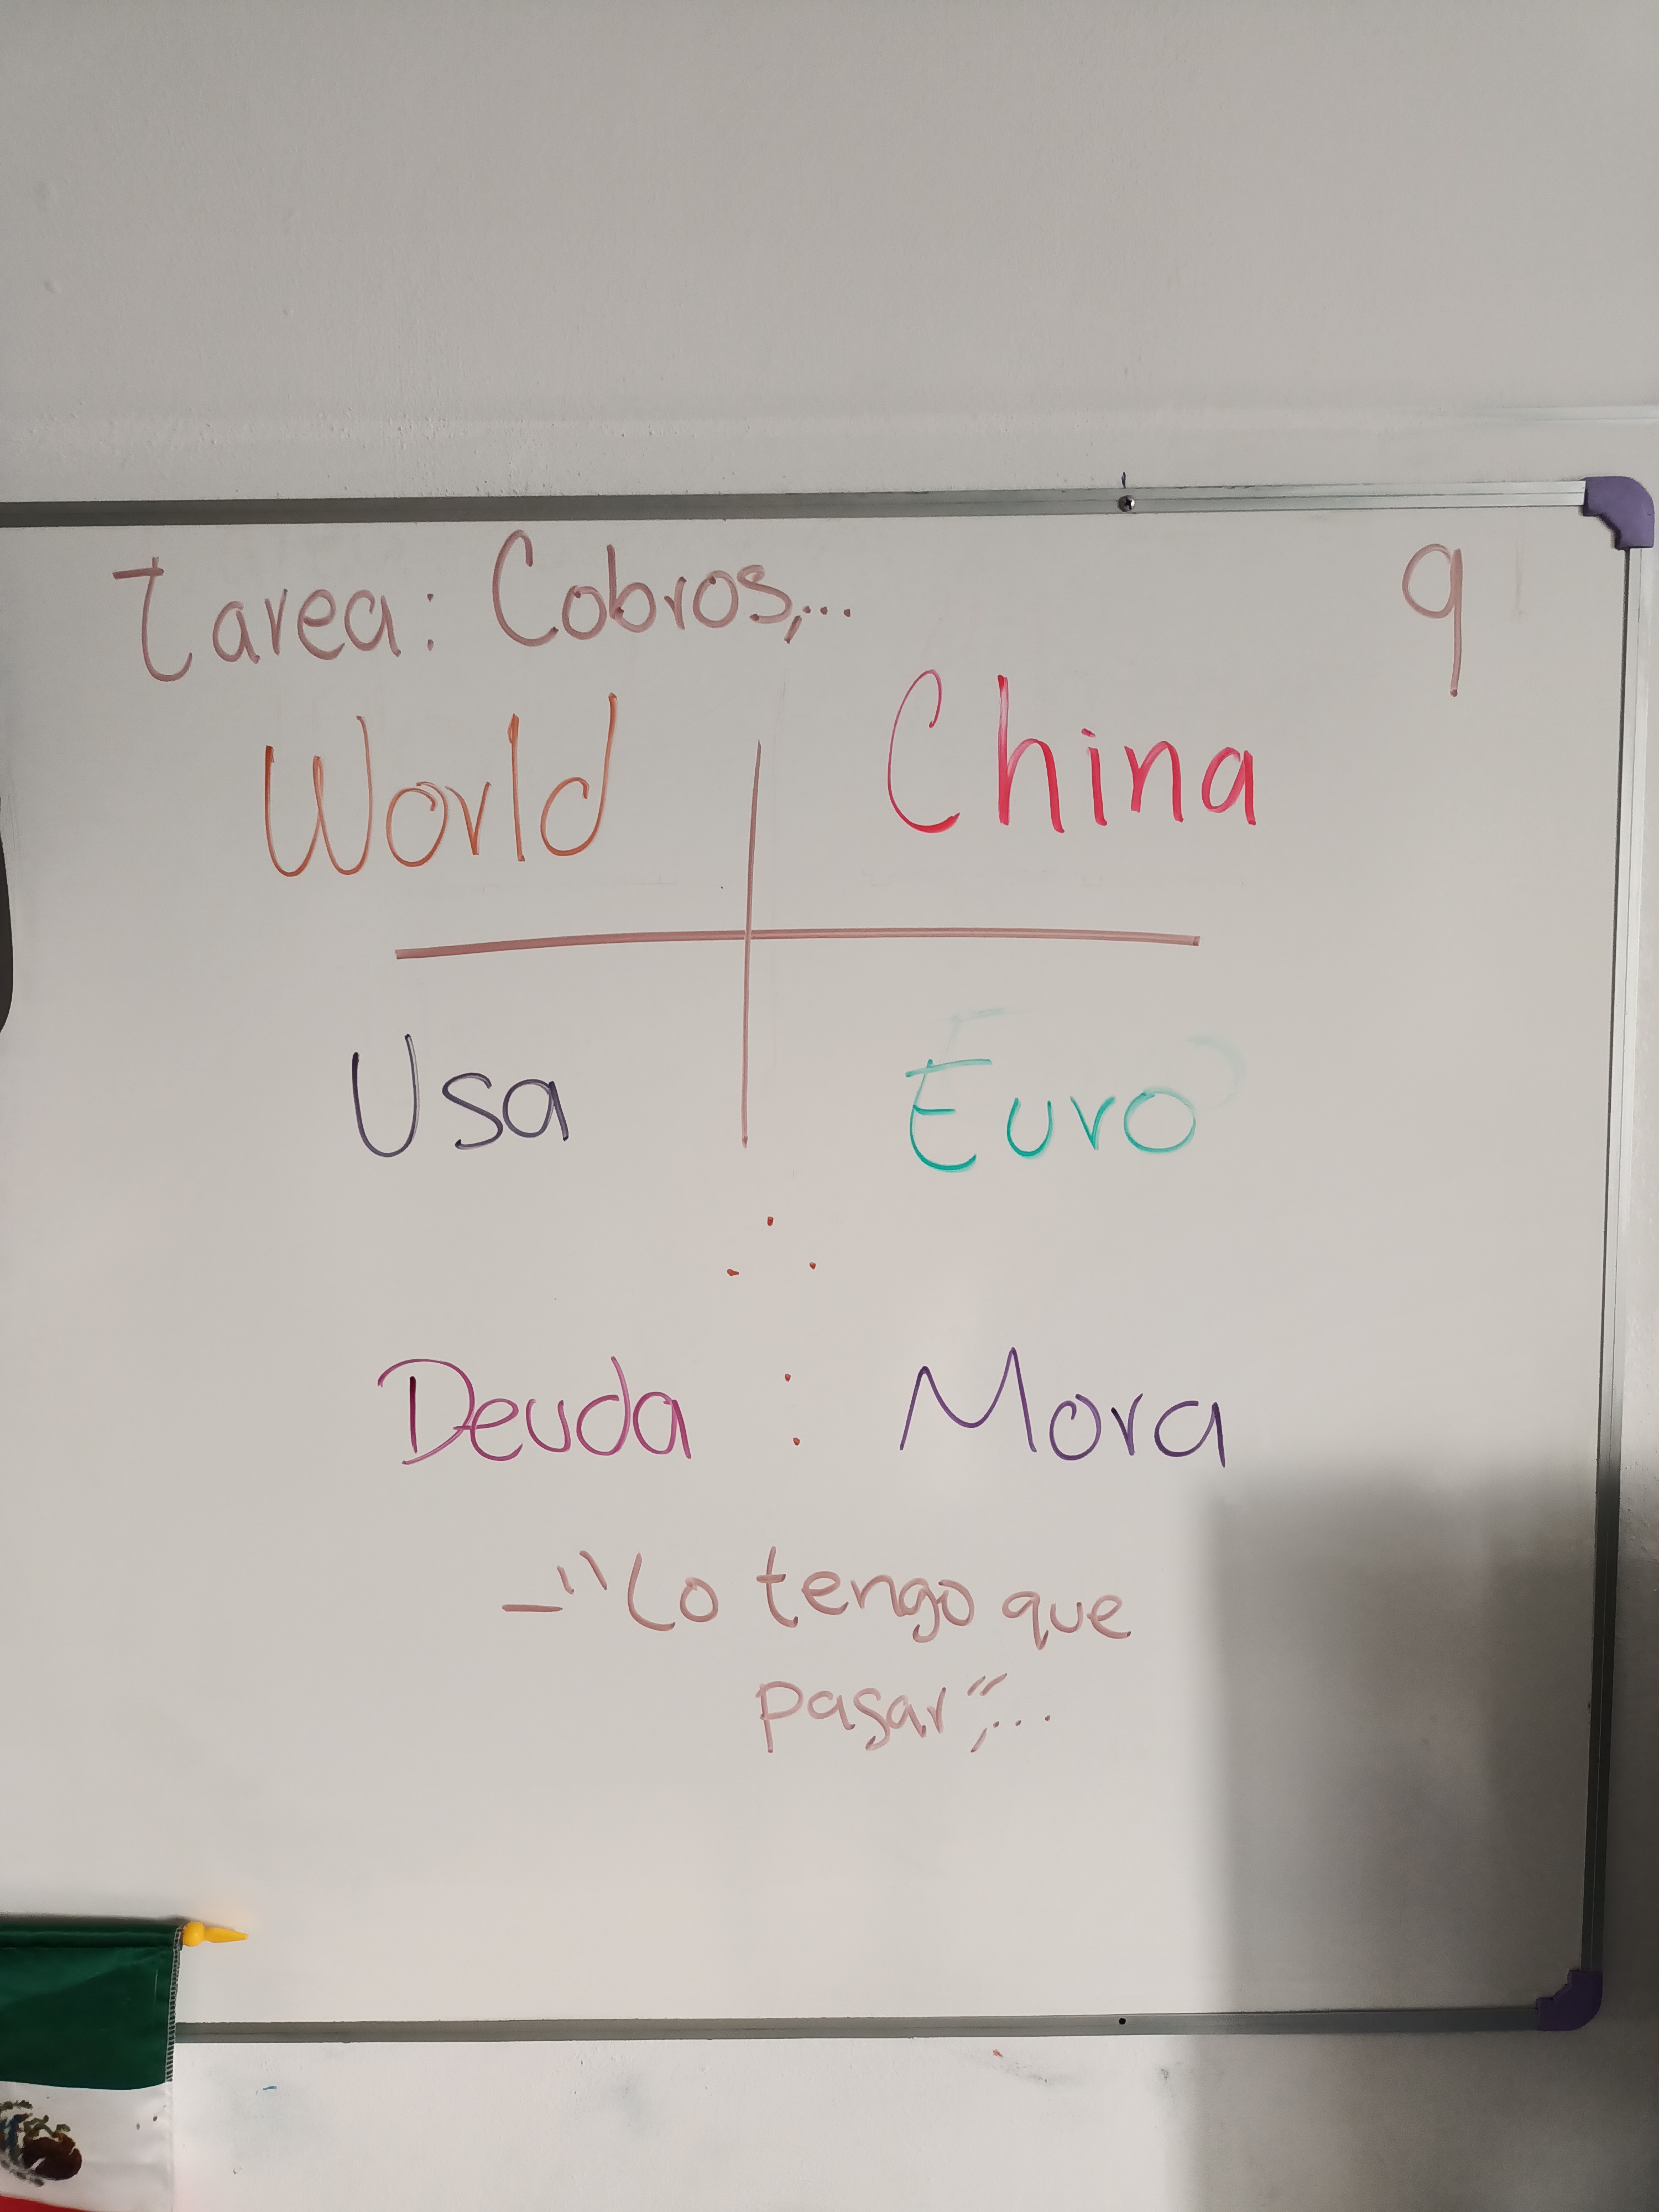 Tarea: Cobros,... 9
World China
Usa Euro
∴
Deuda : Mora
—"Lo tengo que
pasar",...